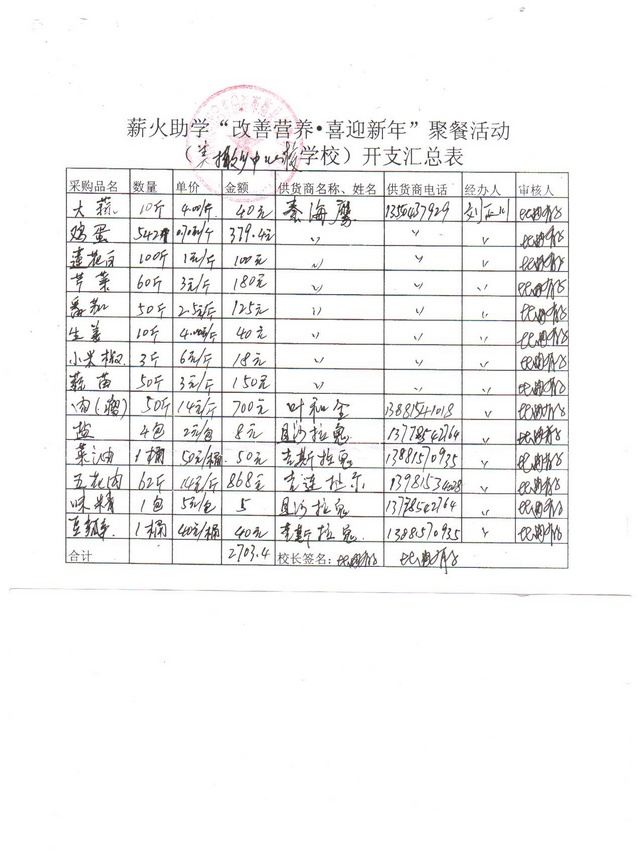 薪火助学“改善营养•喜迎新年”聚餐活动
（ 中心校学校）开支汇总表
采购品名 数量 单价 金额 供货商名称、姓名 供货商电话 经办人 审核人
大蒜 10斤 4.00/斤 40元 秦海鹰 1350437929 刘正川
鸡蛋 542 379.4元 〃 〃 〃
莲花白 100斤 1元/斤 100元 〃 〃 〃
芹菜 60斤 3元/斤 180元 〃 〃 〃
番茄 50斤 2.5元/斤 125元 〃 〃 〃
生姜 10斤 4.00元/斤 40元 〃 〃 〃
小米椒 3斤 6元/斤 18元 〃 〃 〃
蒜苗 50斤 3元/斤 150元 〃 〃 〃
肉(瘦) 50斤 14元/斤 700元 叶和全 13881541018 〃
盐 4包 2元/包 8元 且沙拉鬼 13778542764 〃
菜油 1桶 50元/桶 50元 吉斯拉鬼 13881570935 〃
五花肉 62斤 14元/斤 868元 吉连 13981534028 〃
味精 1包 5元/包 5 且沙拉鬼 13778542764 〃
豆瓣 1桶 40元/桶 40元 吉斯拉鬼 13881570935 〃
合计 2703.4 校长签名：